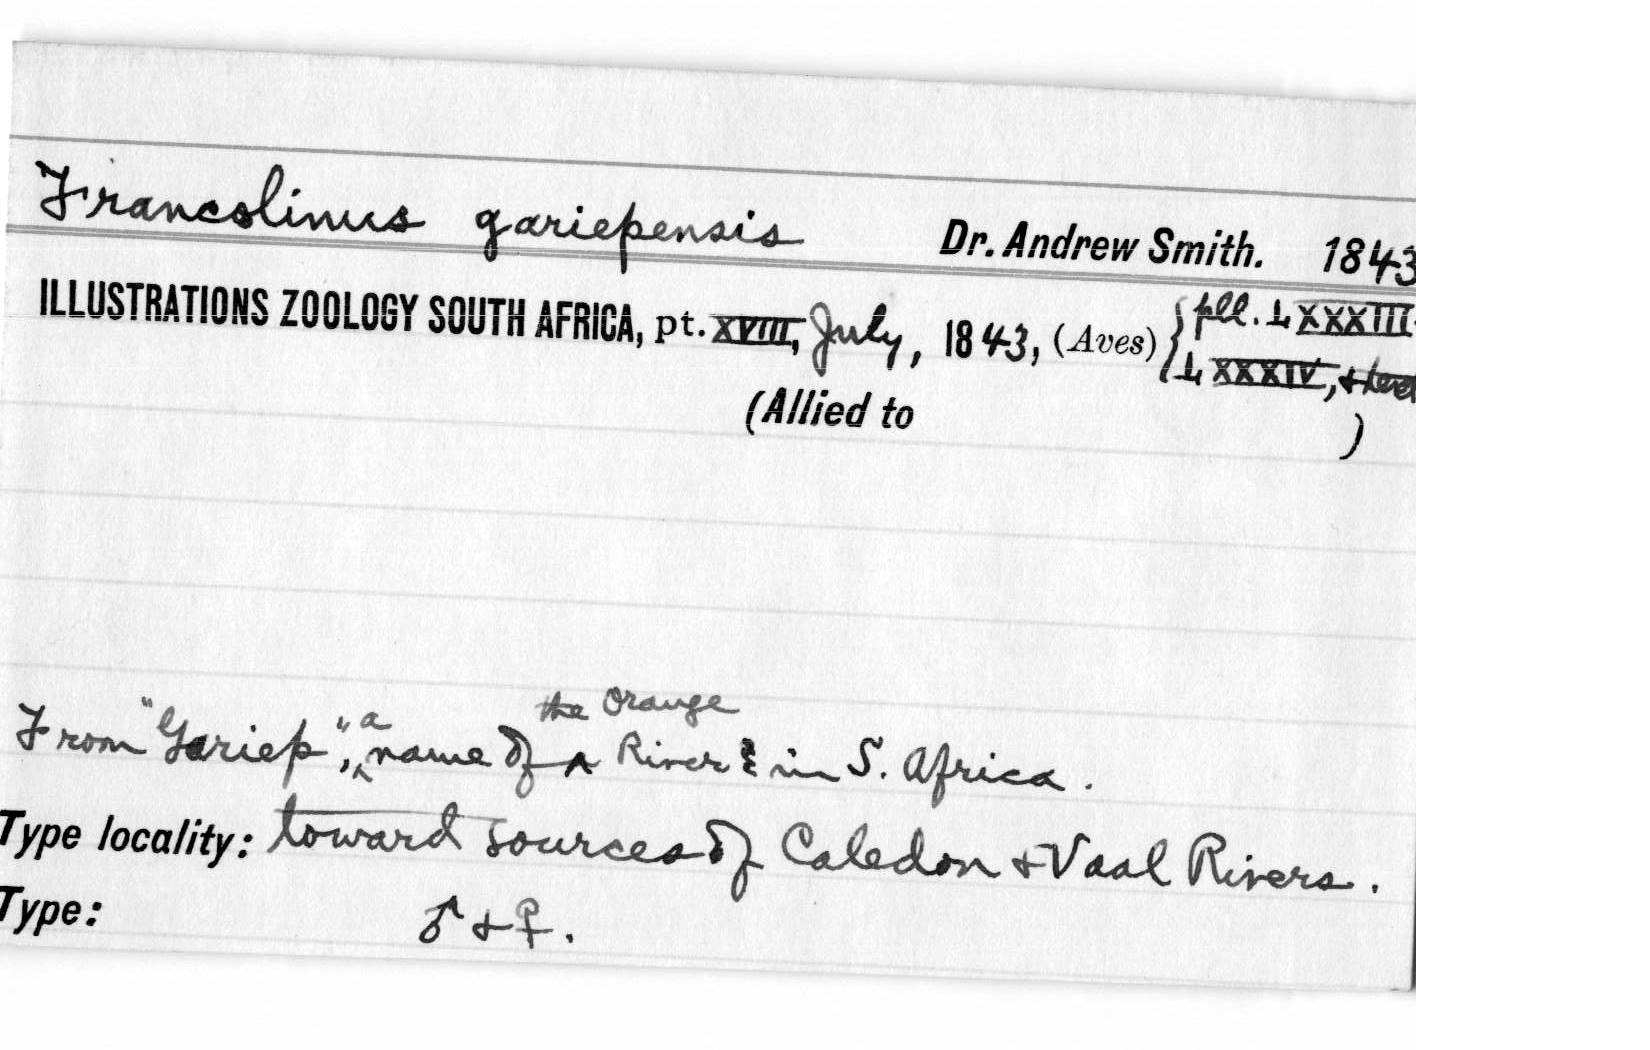 Francolinus gariepensis Dr. Andrew Smith. 1843
ILLUSTRATIONS ZOOLOGY SOUTH AFRICA, pt. XVIII, July, 1843, (Aves) { pll. LXXXIII
LXXXIV, + text
(Allied to )
the Orange
From "Gariep", a name of ^ River in S. Africa.
Type locality: toward sources of Caledon + Vaal Rivers.
Type: ♂ + ♀.